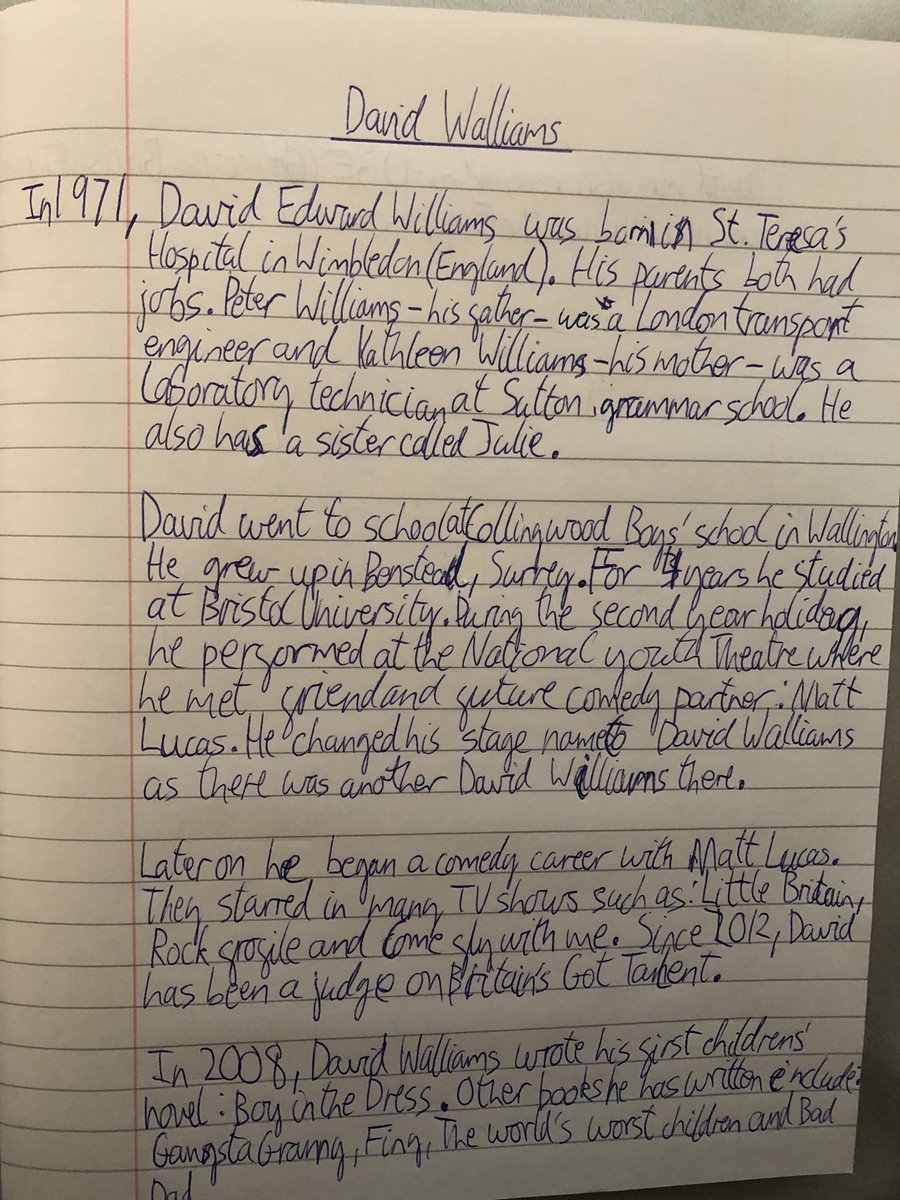 David Walliams
In 1971, David Edward Williams was born in St. Teresa's
Hospital in Wimbledon (England). His parents both had
jobs. Peter Williams - his father - was a London transport
engineer and Kathleen Williams - his mother - was a
laboratory technician at Sutton grammar school. He
also has a sister called Julie.
David went to school at Collingwood Boys' school in Wallington.
He grew up in Benstead, Surrey. For 4 years he studied
at Bristol University. During the second year holiday,
he performed at the National youth Theatre where
he met friend and future comedy partner: Matt
Lucas. He changed his stage name to David Walliams
as there was another David Williams there.
Later on he began a comedy career with Matt Lucas.
They starred in many TV shows such as: Little Britain,
Rock profile and Come fly with me. Since 2012, David
has been a judge on Britain's Got Talent.
In 2008, David Walliams wrote his first childrens'
novel: Boy in the Dress. Other books he has written include:
Gangsta Granny, Fing, The world's worst children and Bad
Dad.